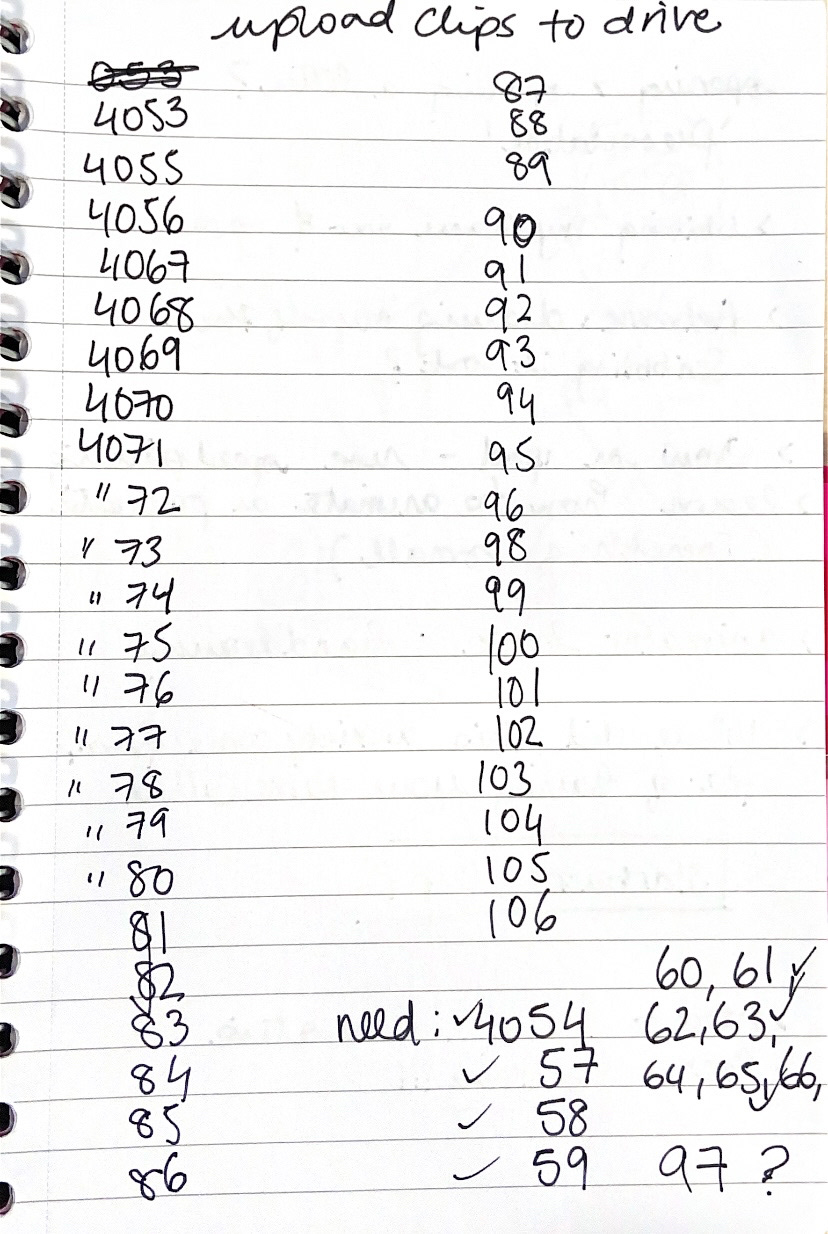 upload clips to drive
053
4053
4055
4056
4067
4068
4069
4070
4071
" 72
" 73
" 74
" 75
" 76
" 77
" 78
" 79
" 80
81
82
83
84
85
86
87
88
89
90
91
92
93
94
95
96
98
99
100
101
102
103
104
105
106
need: ✓4054
✓ 57
✓ 58
✓ 59
60, 61 ✓
62, 63, ✓
64, 65, 66, ✓
97 ?